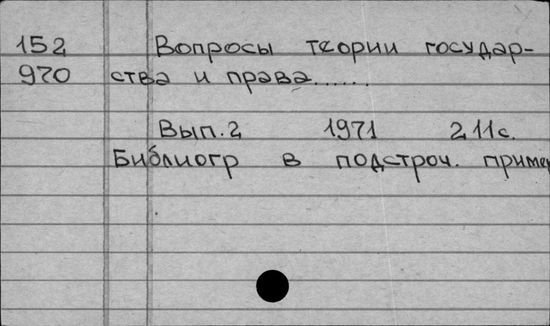 152 Вопросы теории государ-
970 ства и права......
Вып. 2 1971 211с.
Библиогр в подстроч. примеч